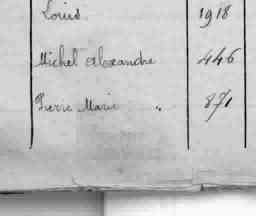 Louis 1918
Michel Alexandre 446
Pierre Marie " 871